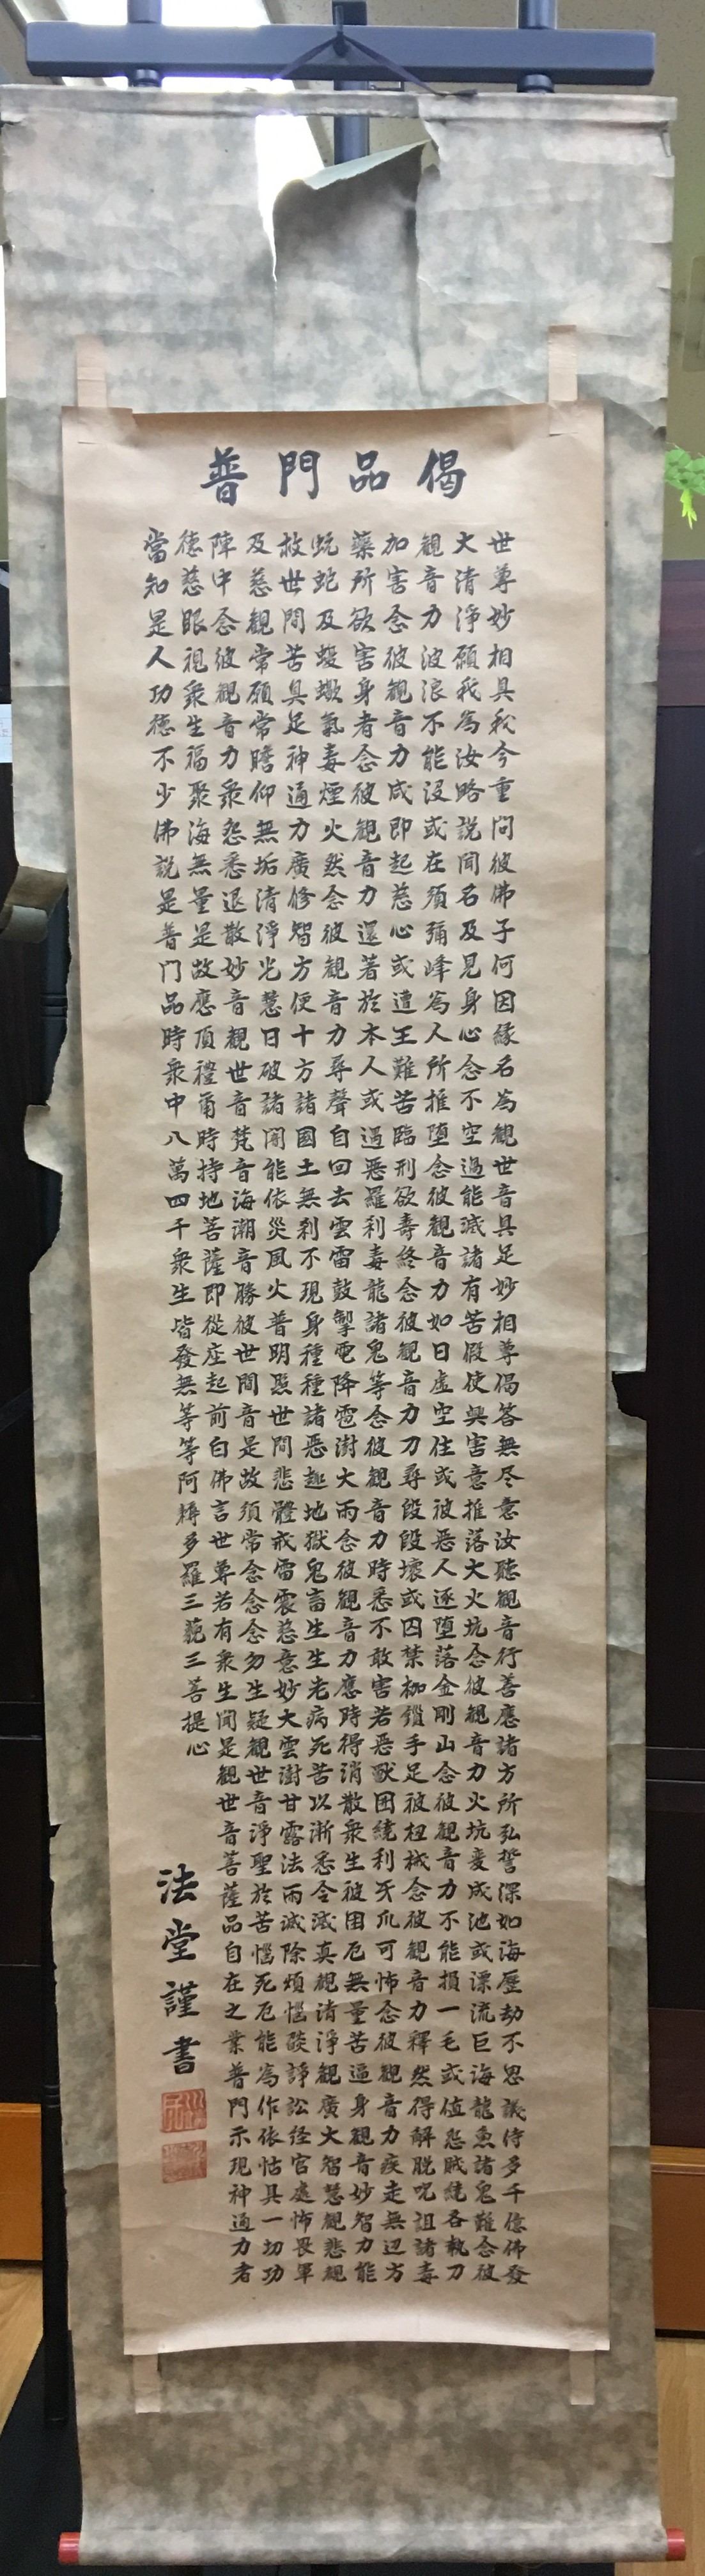 普門品偈
世尊妙相具我今重問彼佛子何因緣名為觀世音具足妙相尊偈答無尽意汝聽觀音行善應諸方所弘誓深如海歷劫不思議侍多千億佛發
大清淨願我為汝略說聞名及見身心念不空過能滅諸有苦假使興害意推落大火坑念彼觀音力火坑变成池或漂流巨海龍魚諸鬼難念彼
觀音力波浪不能没或在須彌峰為人所推墮念彼觀音力如日虛空住或彼惡人逐墮落金剛山念彼觀音力不能損一毛或值怨賊繞各執刀
加害念彼觀音力咸即起慈心或遭王難苦臨刑欲壽終念彼觀音力刀尋段段壞或囚禁枷鎖手足彼杻械念彼觀音力釋然得解脫呪詛諸毒
藥所欲害身者念彼觀音力還著於本人或遇惡羅刹毒龍諸鬼等念彼觀音力時悉不敢害若惡獸囲繞利牙爪可怖念彼觀音力疾走無辺方
蚖蛇及蝮蠍氣毒煙火然念彼觀音力尋聲自回去雲雷鼓掣電降雹澍大雨念彼觀音力應時得消散衆生彼困厄無量苦逼身觀音妙智力能
救世間苦具足神通力廣修智方便十方諸國土無刹不現身種種諸惡趣地獄鬼畜生生老病死苦以漸悉令滅真觀清淨觀廣大智慧觀悲觀
及慈觀常願常瞻仰無垢清淨光慧日破諸闇能依災風火普明照世間悲體戒雷震慈意妙大雲澍甘露法雨滅除煩惱燄諍訟経官處怖畏軍
陣中念彼觀音力衆怨悉退散妙音觀世音梵音海潮音勝彼世間音是故須常念念念勿生疑觀世音淨聖於苦惱死厄能為作依怙具一切功
德慈眼視衆生福聚海無量是故應頂禮爾時持地菩薩即從座起前白佛言世尊若有衆生聞是觀世音菩薩品自在之業普門示現神通力者
當知是人功德不少佛說是普門品時衆中八萬四千衆生皆發無等等阿耨多羅三藐三菩提心
法堂謹書